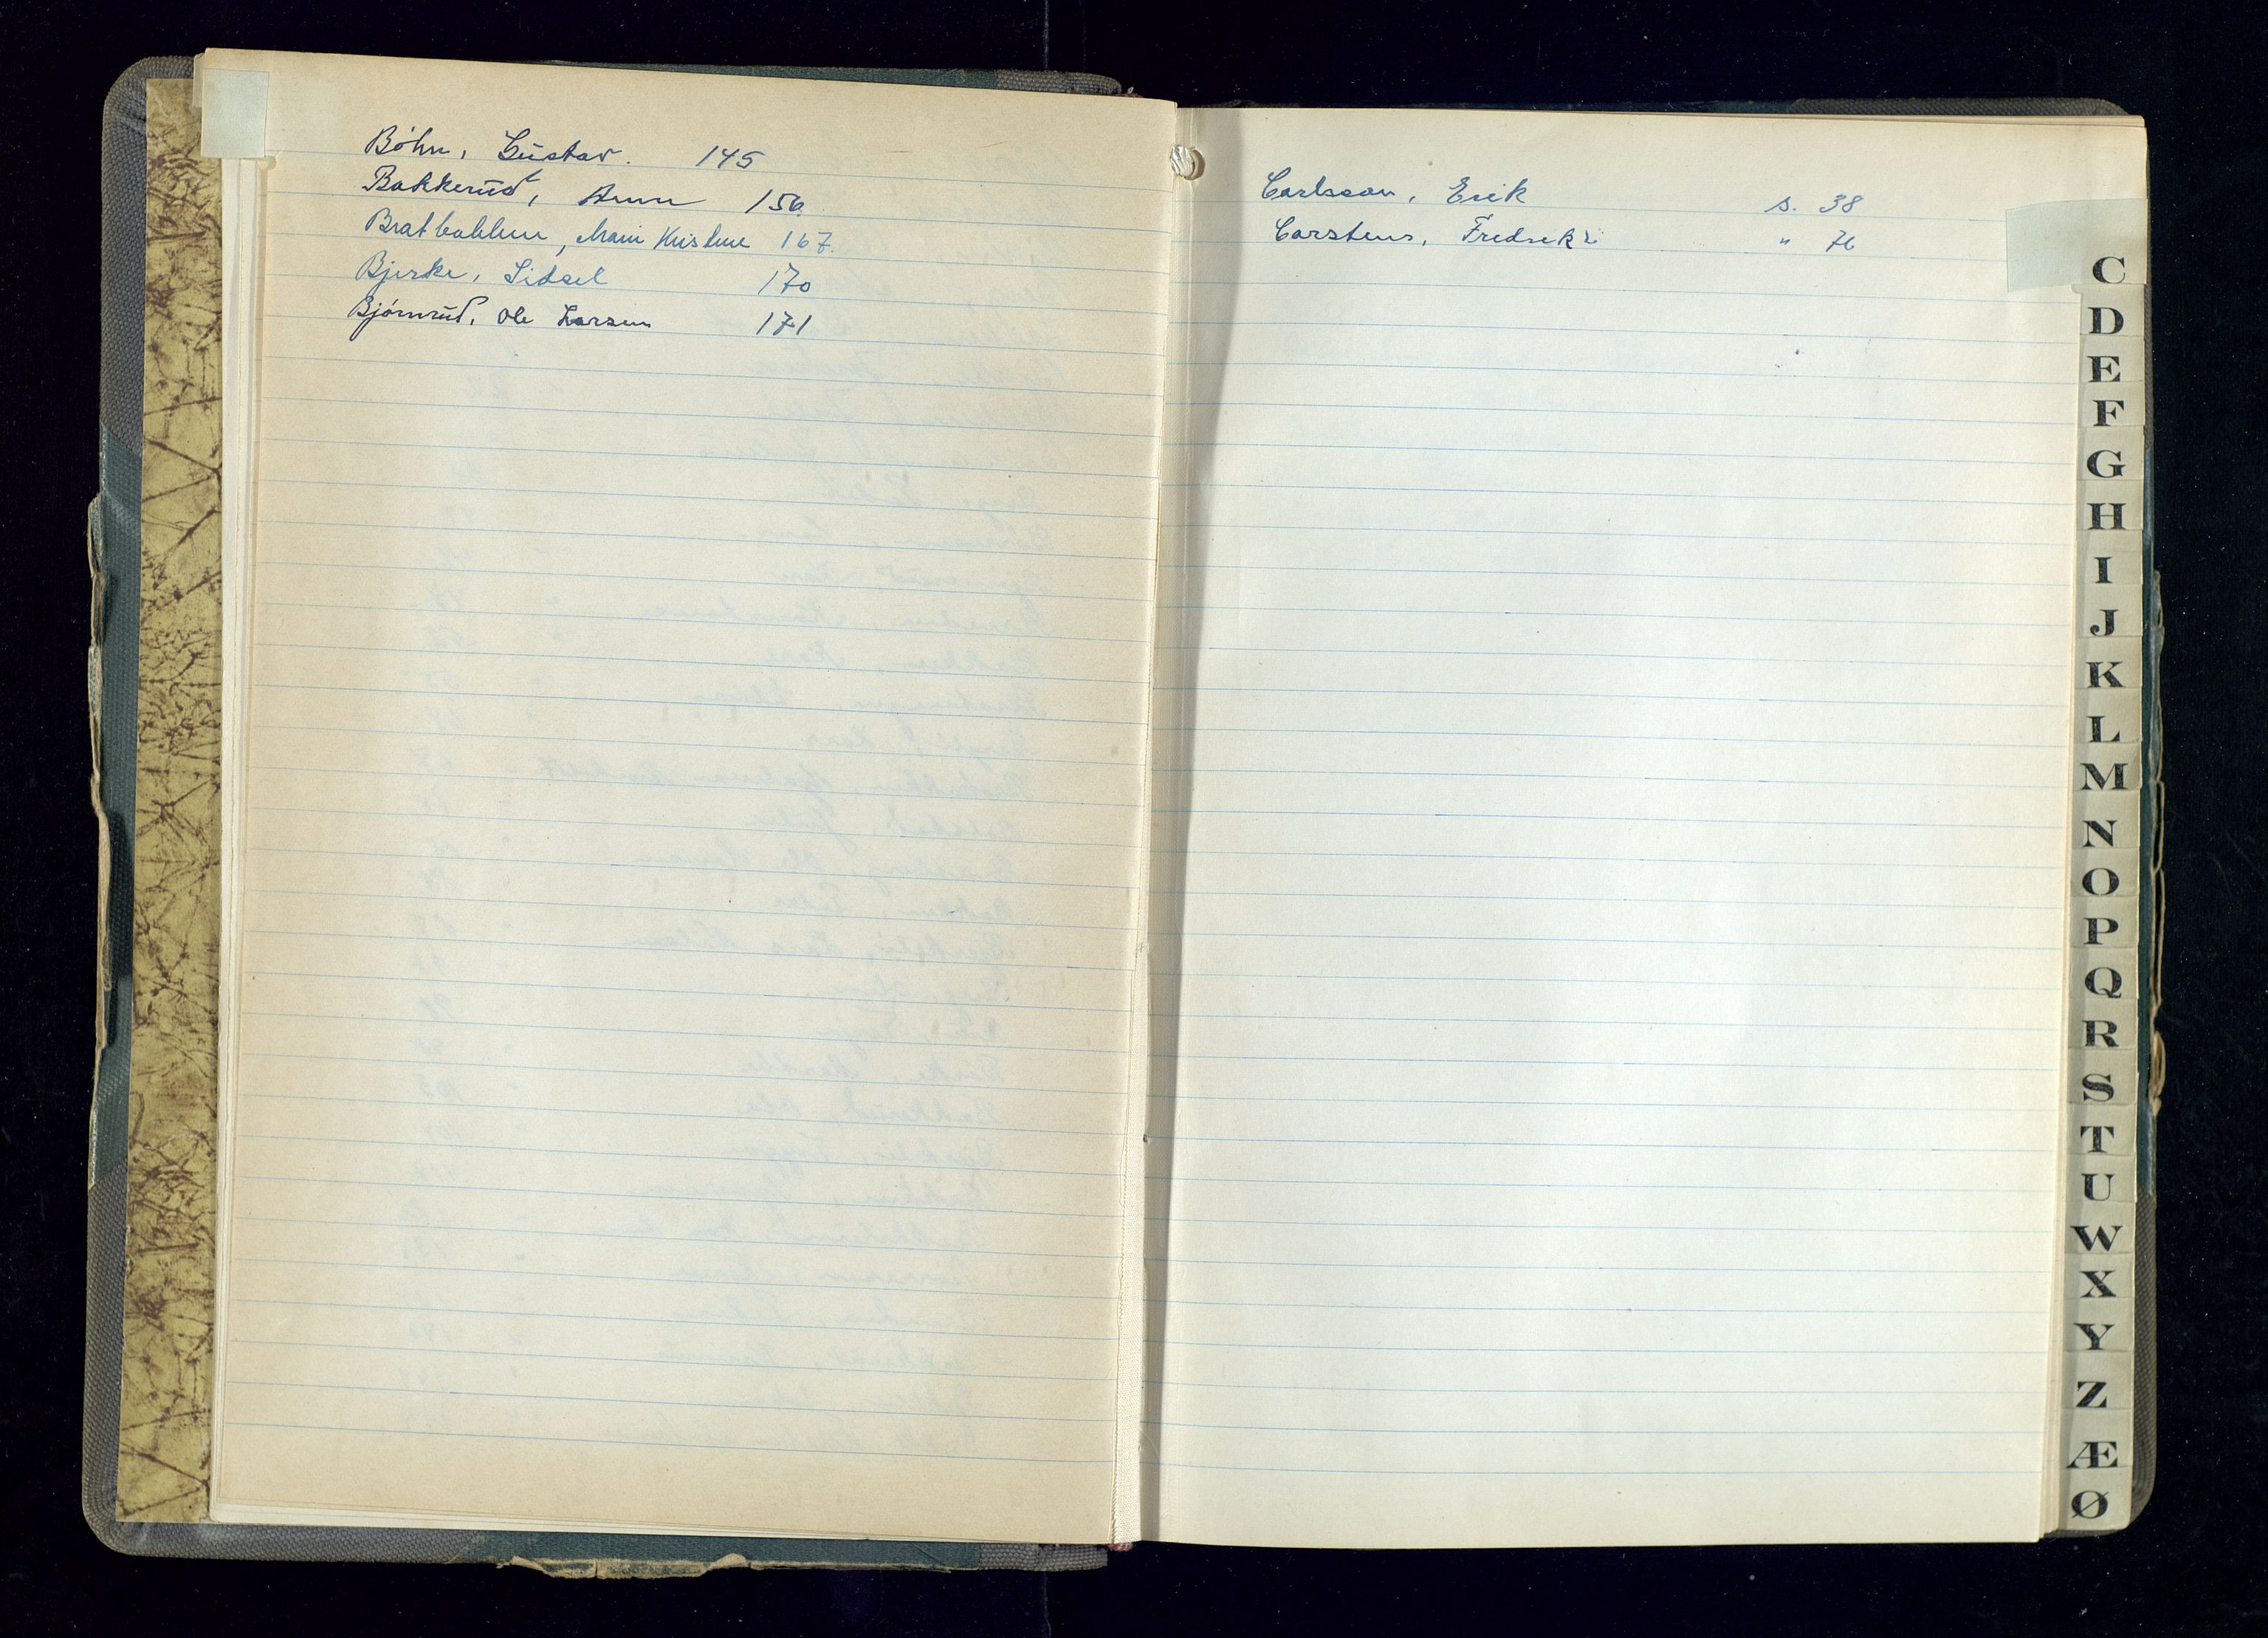 Bøhn, Gustav. 145
Bakkerud, Anne 156
Bratbakken, Marie Kristine 167.
Bjerke, Sidsel 170
Bjørnrud, Ole Larsen 171
Carlsson, Erik s. 38
Carstens, Fredrik " 76
C
D
E
F
G
H
I
J
K
L
M
N
O
P
Q
R
S
T
U
W
X
Y
Z
Æ
Ø